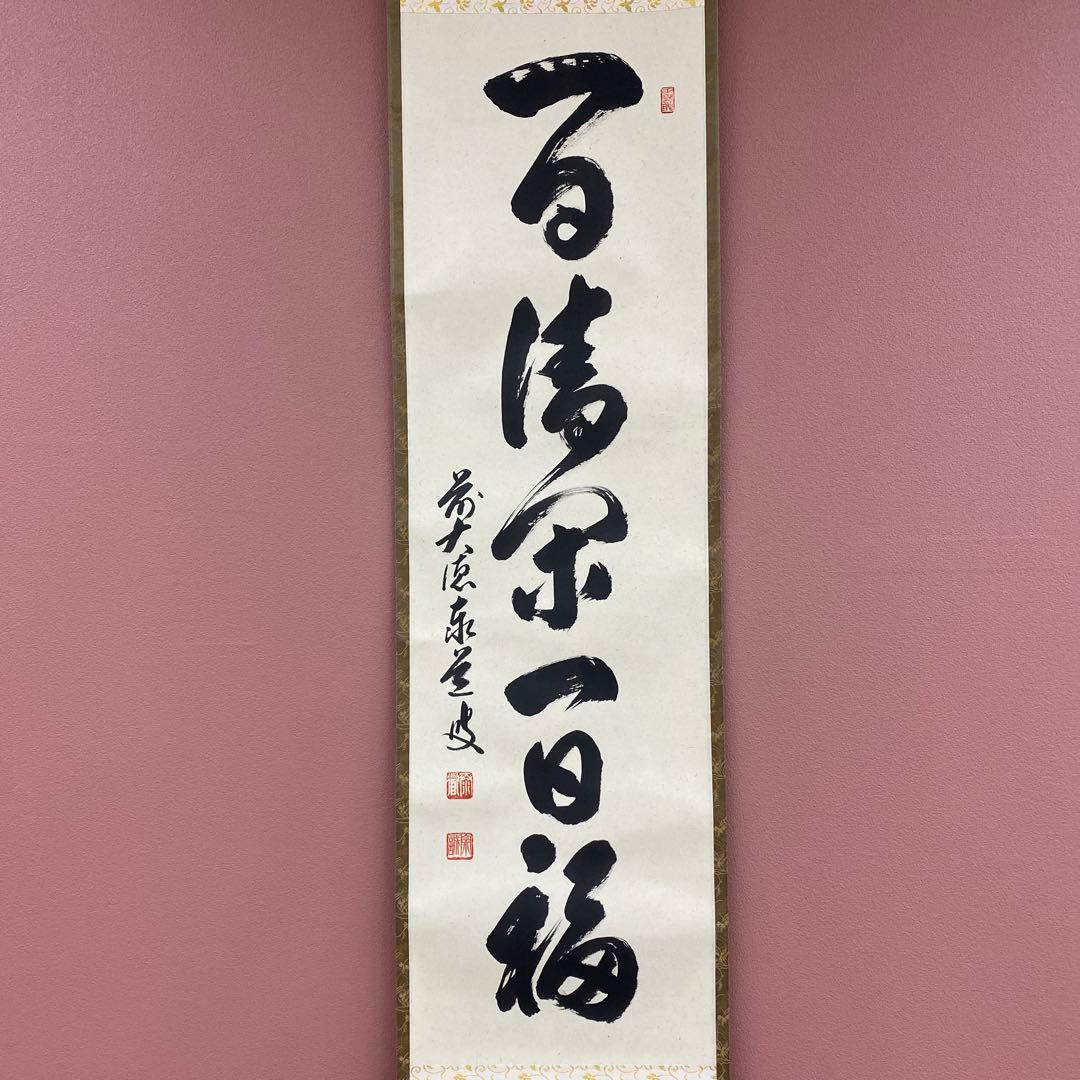 一日清閑一日福
前大徳泰道叟